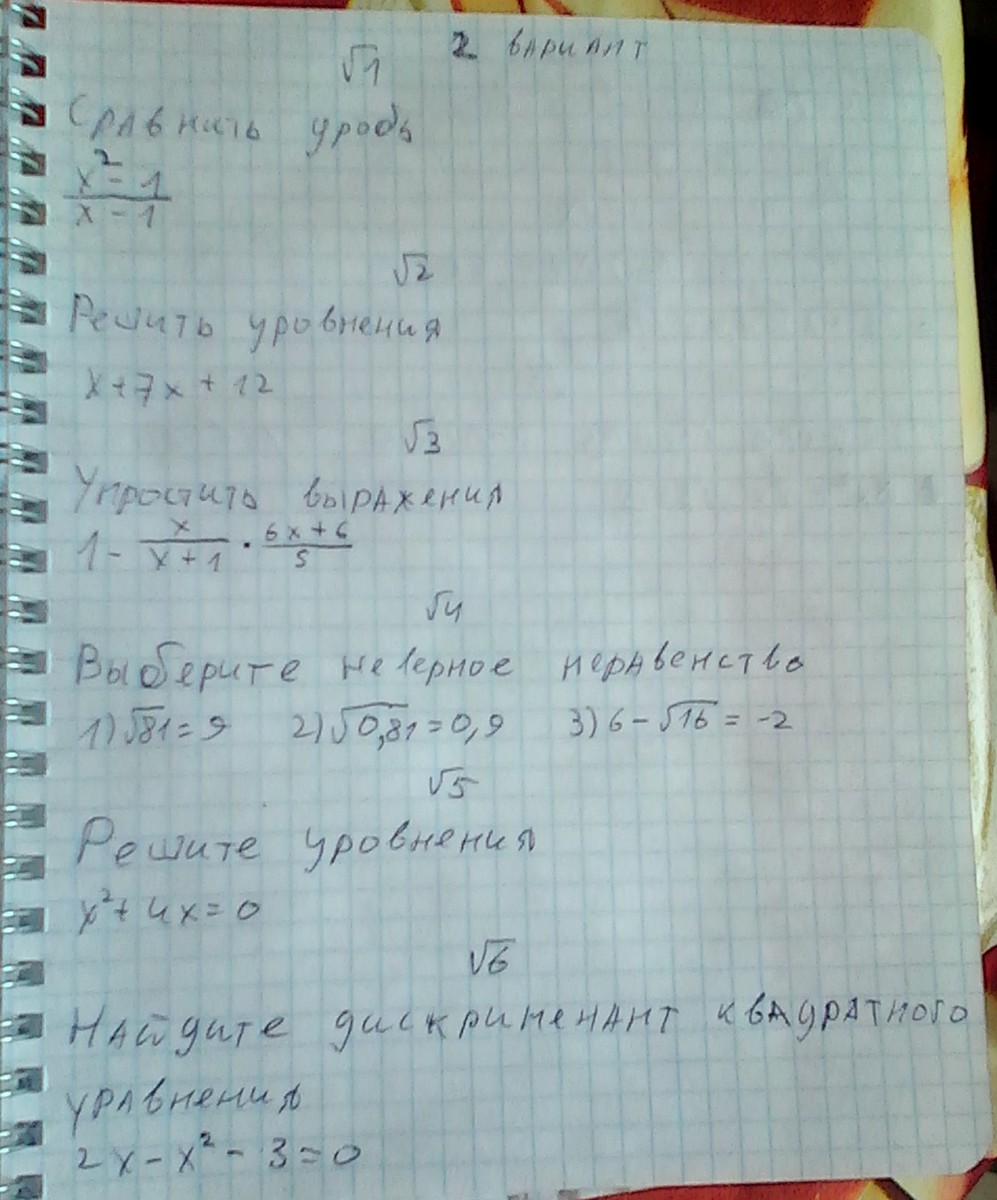 2 вариант
√1
Сравнить дробь
x² - 1 / x - 1
√2
Решить уровнения
x + 7x + 12
√3
Упростить выражения
1 - x / x + 1 · 6x + 6 / 5
√4
Выберите неверное неравенство
1) √81 = 9 2) √0,81 = 0,9 3) 6 - √16 = -2
√5
Решите уровнения
x² + 4x = 0
√6
Найдите дискрименант квадратного
уравнения
2x - x² - 3 = 0